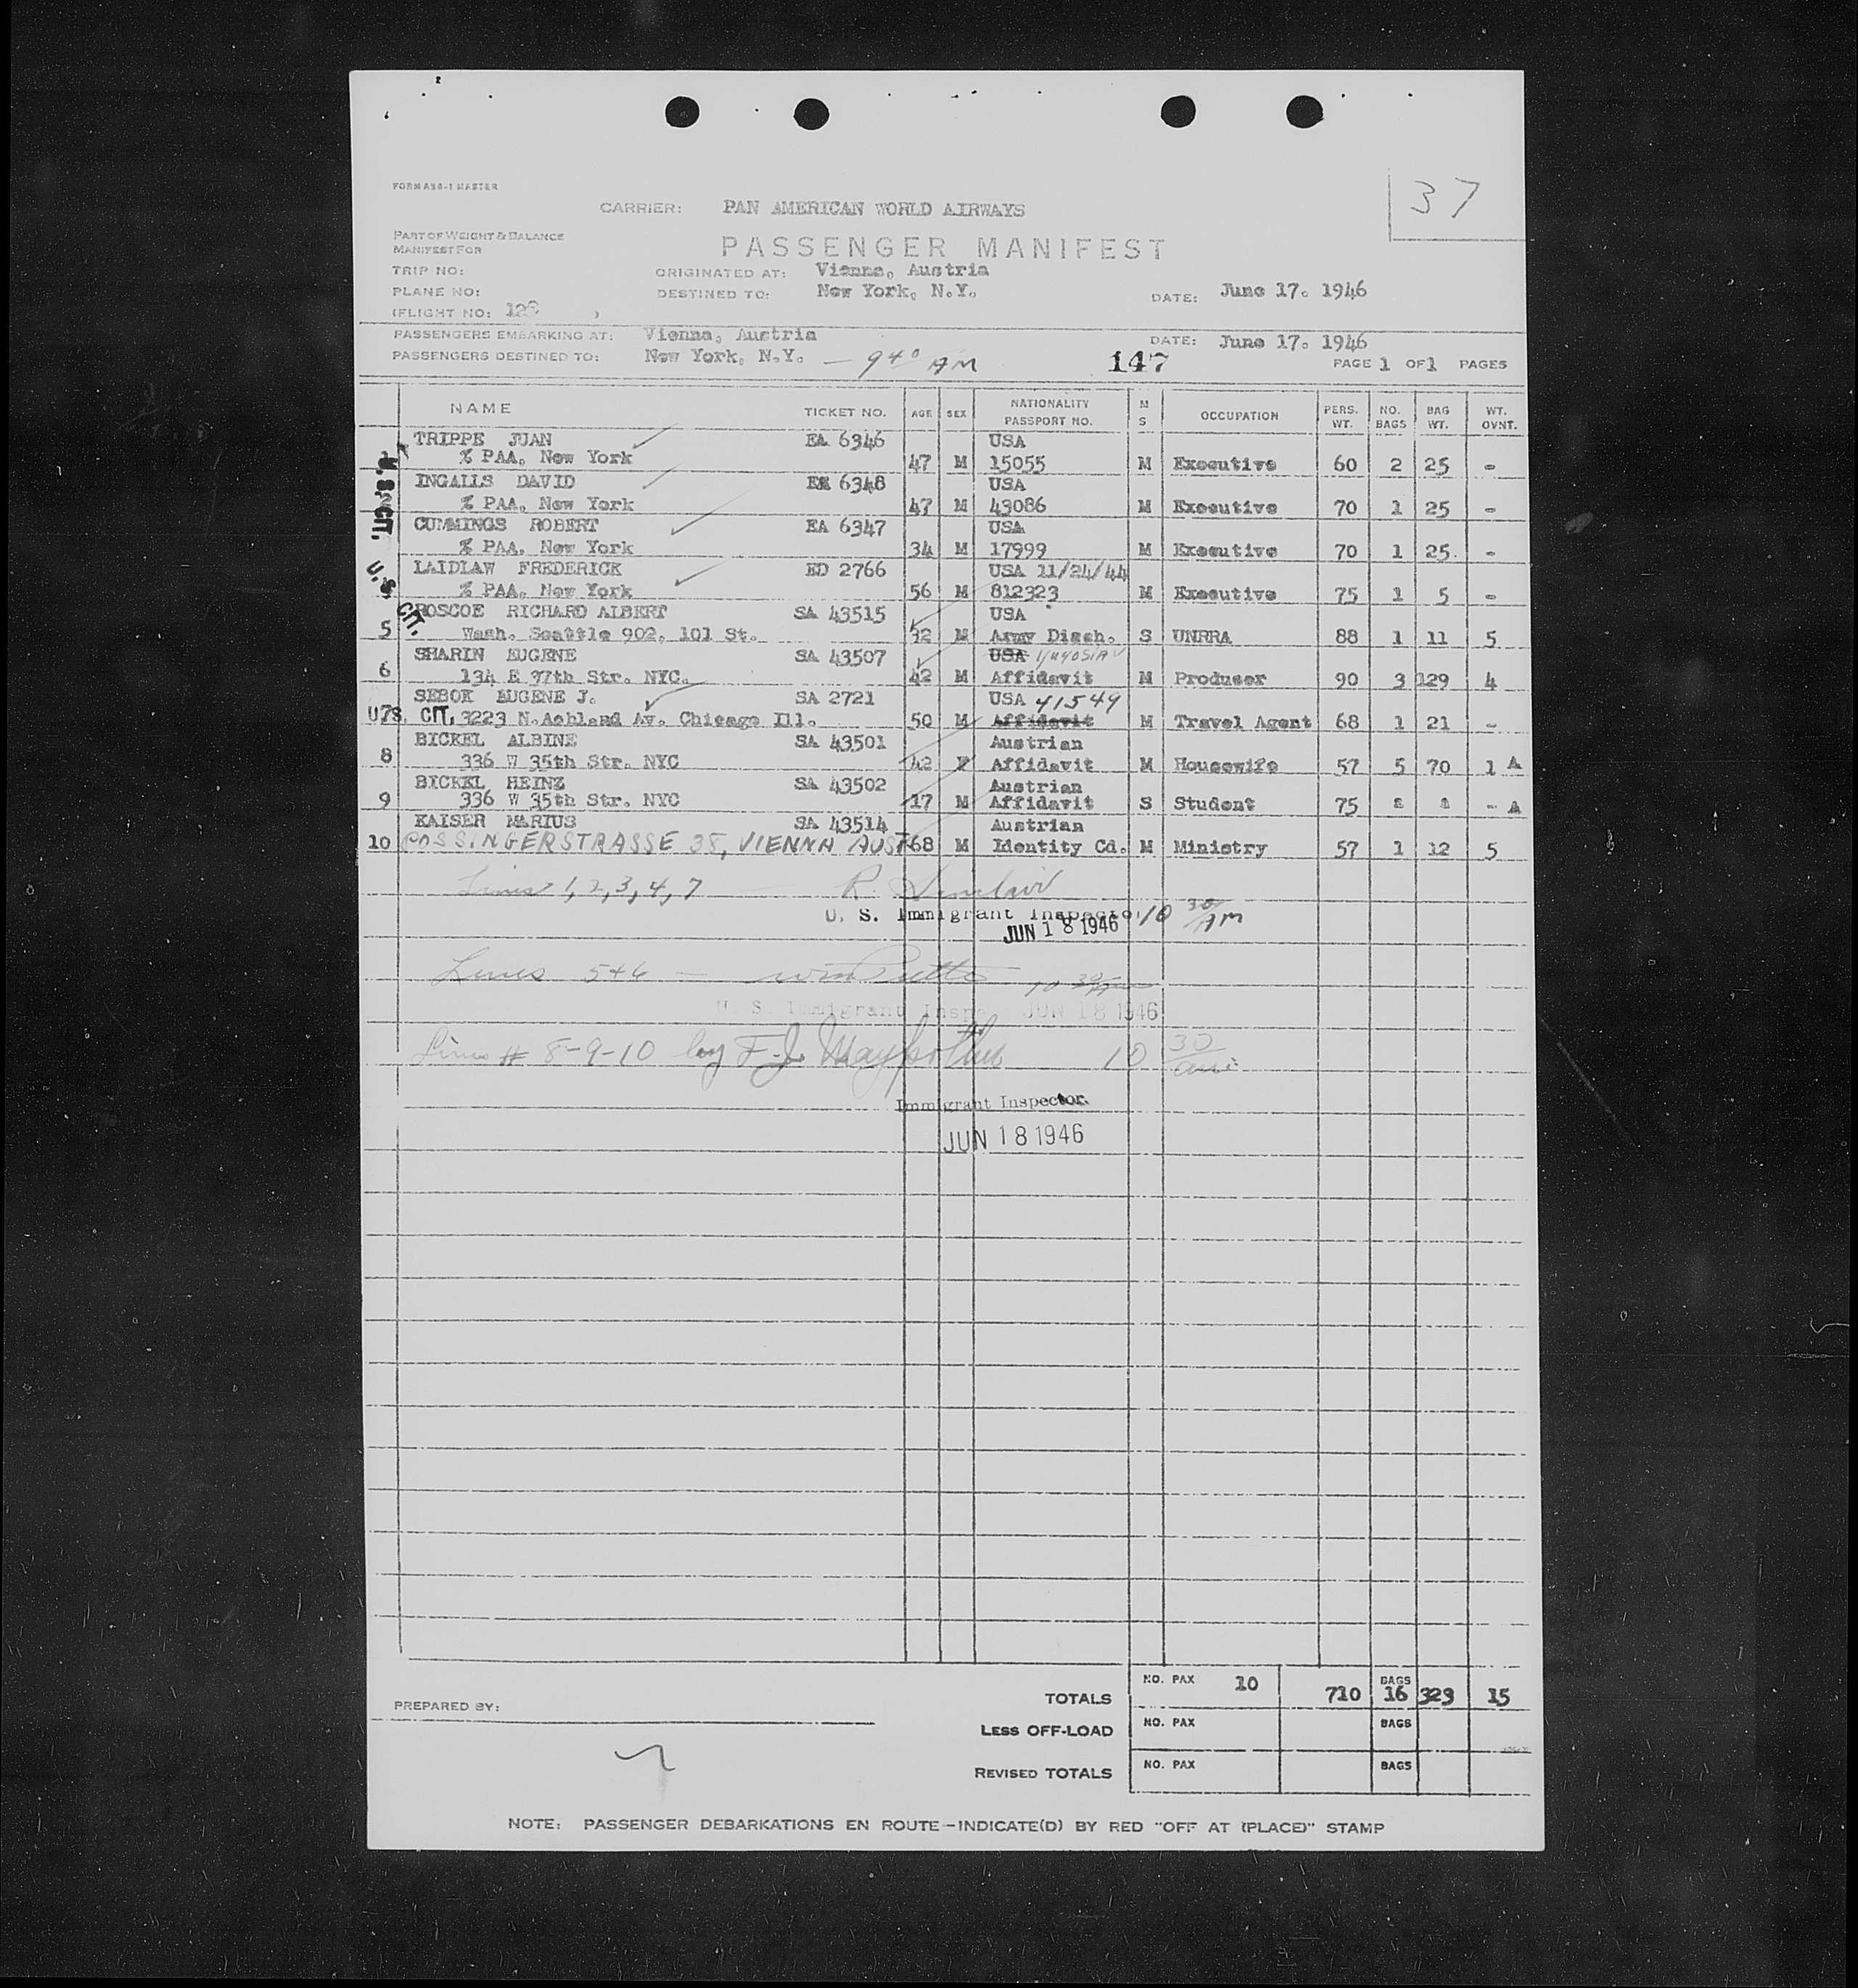 37
FORM A86-1 MASTER
CARRIER: PAN AMERICAN WORLD AIRWAYS
PART OF WEIGHT & BALANCE
MANIFEST FOR
PASSENGER MANIFEST
TRIP NO: ORIGINATED AT: Vienna, Austria
PLANE NO: DESTINED TO: New York, N.Y. DATE: June 17. 1946
(FLIGHT NO: )
PASSENGERS EMBARKING AT: Vienna, Austria DATE: June 17. 1946
PASSENGERS DESTINED TO: New York, N.Y. — 9 40 AM 147 PAGE 1 OF 1 PAGES
NAME TICKET NO. AGE SEX NATIONALITY PASSPORT NO. M S OCCUPATION PERS. WT. NO. BAGS BAG WT. WT. OVNT.
TRIPPE JUAN EA 6346 USA
% PAA, New York 47 M 15055 M Executive 60 2 25 -
INGALLS DAVID 6348 USA
% PAA, New York 47 M 43086 M Executive 70 1 25 -
CUMMINGS ROBERT EA 6347 USA
% PAA, New York 34 M 17999 M Executive 70 1 25 -
LAIDLAW FREDERICK ED 2766 USA 11/24/44
% PAA, New York 56 M 812323 M Executive 75 1 5 -
U.S. CIT.
U.S. CIT.
ROSCOE RICHARD ALBERT SA 43515 USA
5 Wash. Seattle 902, 101 St. 32 M Army Disch. S UNRRA 88 1 11 5
SHARIN EUGENE SA 43507 USA
6 134 E 37th Str. NYC. 42 M Affidavit M Producer 90 3 129 4
SEBOK EUGENE J. SA 2721 USA 41549
U.S. CIT. 7 3223 N.Ashland Av. Chicago Ill. 50 M Affidavit M Travel Agent 68 1 21 -
BICKEL ALBINE SA 43501 Austrian
8 336 W 35th Str. NYC 42 F Affidavit M Housewife 57 5 70 1 A
BICKEL HEINZ SA 43502 Austrian
9 336 W 35th Str. NYC 17 M Affidavit S Student 75 - A
KAISER MARIUS SA 43514 Austrian
10 POSSINGERSTRASSE 38, VIENNA AUST 68 M Identity Cd. M Ministry 57 1 12 5
Lines 1, 2, 3, 4, 7 R. Sinclair
U. S. Immigrant Inspector 10 30 AM
JUN 18 1946
Lines 5+6 — 10 30
U. S. Immigrant Inspe JUN 18 1946
Lines # 8-9-10 by F. J. 10 30 am
Immigrant Inspector.
JUN 18 1946
TOTALS NO. PAX 10 710 BAGS 16 323 15
PREPARED BY:
LESS OFF-LOAD NO. PAX BAGS
REVISED TOTALS NO. PAX BAGS
NOTE: PASSENGER DEBARKATIONS EN ROUTE—INDICATE(D) BY RED "OFF AT (PLACE)" STAMP